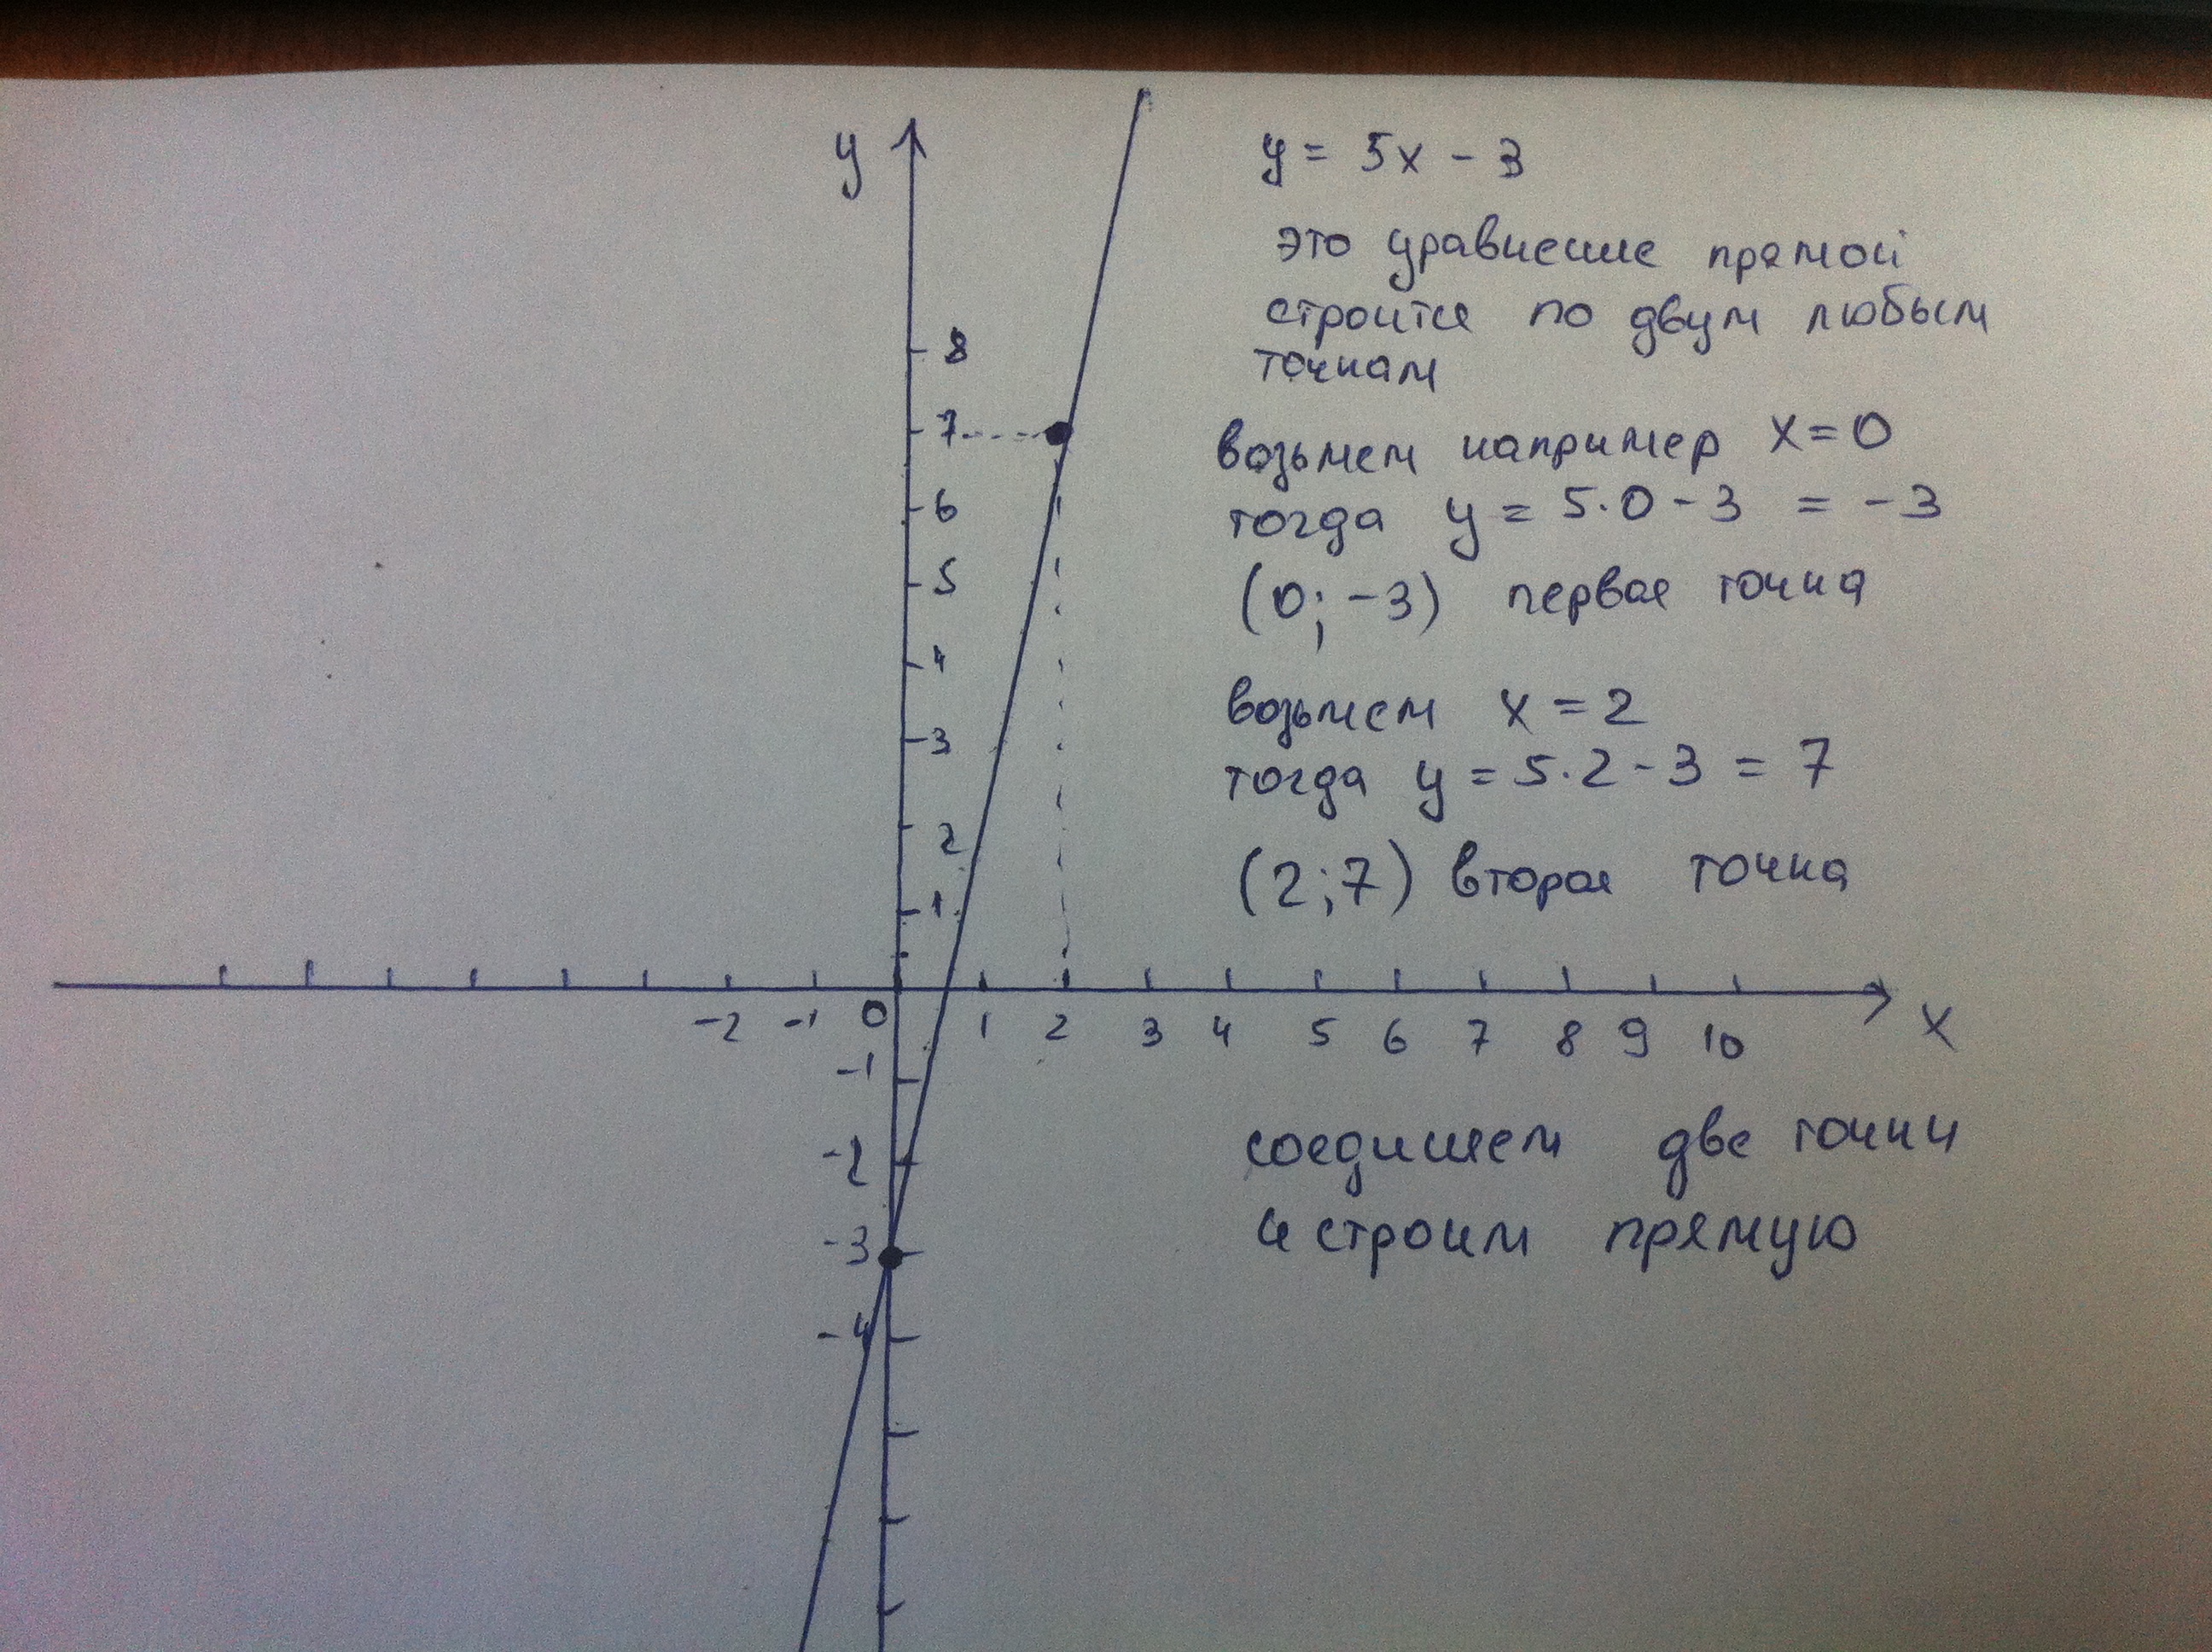 y
y = 5x - 3
это уравнение прямой
строится по двум любым
точкам
возьмем например x=0
тогда y = 5·0 - 3 = -3
(0; -3) первая точка
возьмем x = 2
тогда y = 5·2 - 3 = 7
(2;7) вторая точка
8
7
6
5
4
3
2
1
-2 -1 0 1 2 3 4 5 6 7 8 9 10 x
-1
-2
-3
-4
соединяем две точки
и строим прямую